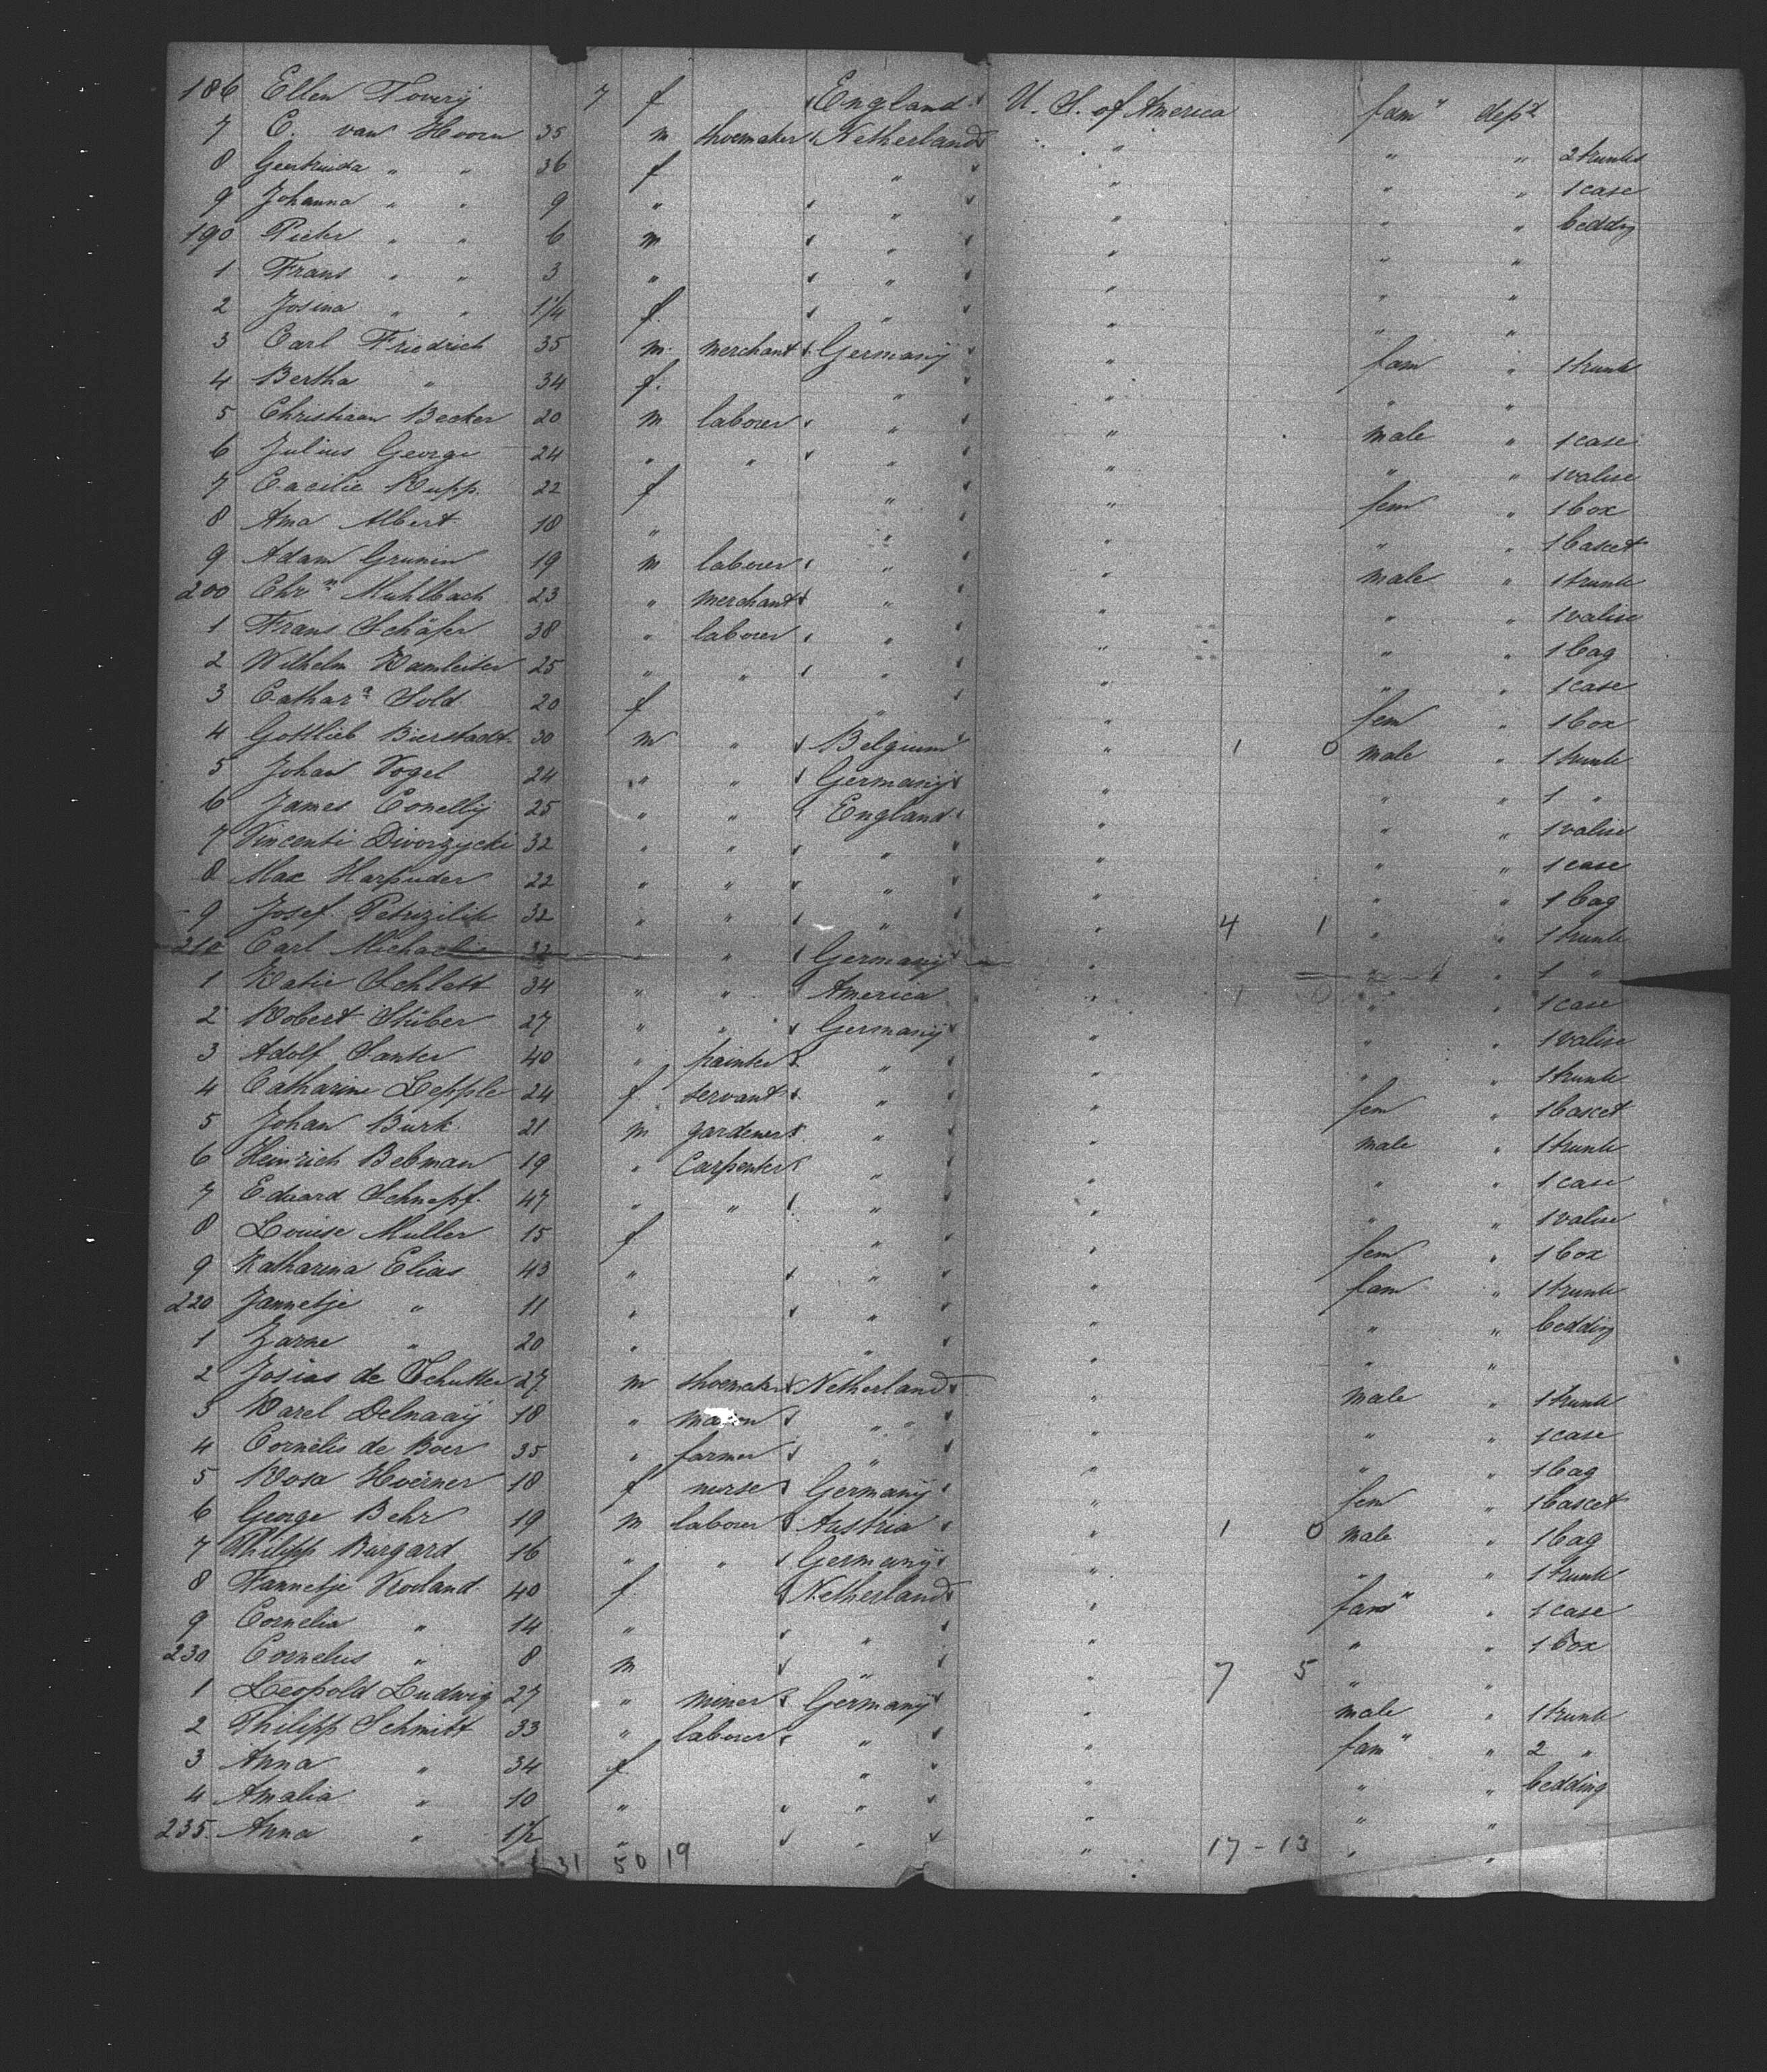 186 Ellen Tovery 7 f England U. S. of America fam" dept
7 C. van Hoorn 35 m shoemaker Netherland " " " 2 trunks
8 Geertruida " " 36 f " " " " 1 case
9 Johanna " " 9 " " " " " bedding
190 Pieter " " 6 m " " " "
1 Frans " " 3 " " " " "
2 Josina " " 1 1/4 f. " " " "
3 Carl Friedrich 35 m. merchant Germany " fam " 1 trunk
4 Bertha " 34 f. " " " "
5 Christiaan Becker 20 m laborer " " male " 1 case
6 Julius George 24 " " " " " " 1 valise
7 Cacilie Rupp. 22 f " " fem " 1 box
8 Ama Albert 18 " " " " " 1 bascet
9 Adam Grunin 19 m laborer " " male " 1 trunk
200 Chrn Muhlbach 23 " merchant " " " " 1 valise
1 Frans Schäfer 38 " laborer " " " " 1 bag
2 Wilhelm Ramleiter 25 " " " " " " 1 case
3 Cathara Sold 20 f " " fem " 1 box
4 Gottlieb Bierstadt 30 m " Belgium " 1 0 male " 1 trunk
5 Johan Vogel 24 " " Germany " " " 1 "
6 James Conelly 25 " " England " " " 1 valise
7 Vincenti Divorzycki 32 " " " " " " 1 case
8 Max Harpuder 22 " " " " " " 1 bag
9 Josef Petrizilik 32 " " " " 4 1 " " 1 trunk
210 Carl Michaelis 32 " " Germany " " " 1 "
1 Katie Schlett 34 " " America " 1 0 " " 1 case
2 Robert Stüber 27 " " Germany " " " 1 valise
3 Adolf Santer 40 " painter " " " " 1 trunk
4 Catharine Lepple 24 f. servant " " fem " 1 bascet
5 Johan Burk 21 m gardener " " male " 1 trunk
6 Heinrich Bebman 19 " Carpenter " " " " 1 case
7 Eduard Schnepf. 47 " " " " " " 1 valise
8 Louise Muller 15 f " " fem " 1 box
9 Katharina Elias 43 " " " fam " 1 trunk
220 Jannetje " 11 " " " " " bedding
1 Zarne " 20 " " " " "
2 Josias de Schutter 27 m shoemaker Netherland " male " 1 trunk
3 Karel Delnaaij 18 " mason " " " " " 1 case
4 Cornelis de Boer 35 " farmer " " " " 1 bag
5 Rosa Hoerner 18 f nurse Germany " fem " 1 bascet
6 George Behr 19 m laborer Austria " 1 0 male " 1 bag
7 Philipp Burgard 16 " " Germany " " " 1 trunk
8 Fannetje Vroland 40 f Netherland " fam" " 1 case
9 Cornelia " 14 " " " " " 1 box
230 Cornelius " 8 m " " 7 5 " "
1 Leopold Ludwig 27 " miner Germany " male " 1 trunk
2 Philipp Schmitt 33 " laborer " " fam" " 2 "
3 Anna " 34 f " " " " bedding
4 Amalia " 10 " " " " " "
235. Anna " 1 1/2 " " " 17-13 " "
31 50 19